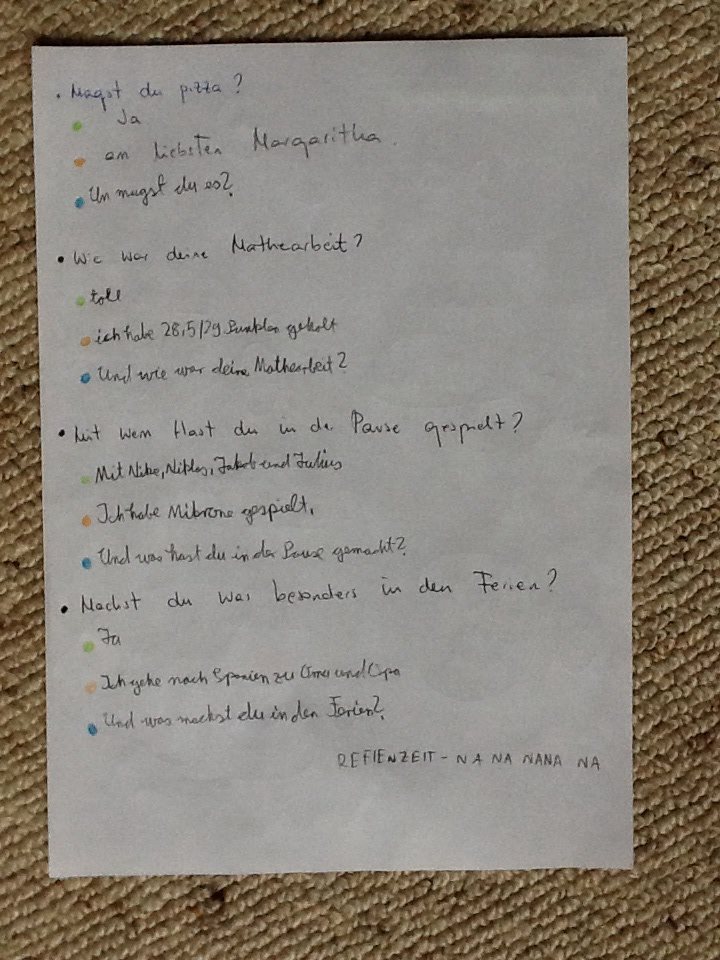 • Magst du pizza?
Ja
am liebsten Margaritha.
Un magst du es?
• Wie war deine Mathearbeit?
toll
ich habe 28,5/29 Punkten geholt
Und wie war deine Mathearbeit?
• Mit wem Hast du in der Pause gespielt?
Mit Nike, Niklas, Jakob und Julius
Ich habe Mibrone gespielt.
Und was hast du in der Pause gemacht?
• Machst du was besonders in den Ferien?
Ja
Ich gehe nach Spanien zu Oma und Opa
Und was machst du in den Ferien?
REFIENZEIT - NA NA NANA NA